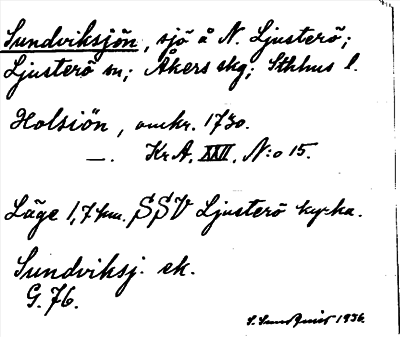 Sundviksjön, sjö å N. Ljusterö;
Ljusterö sn; Åkers skg; Sthlms l.
Holsiön, omkr. 1730.
—. Kr A. XXII. N:o 15.
Läge 1,7 km. SSV Ljusterö kyrka.
Sundviksj. ek.
G. 76.
1936